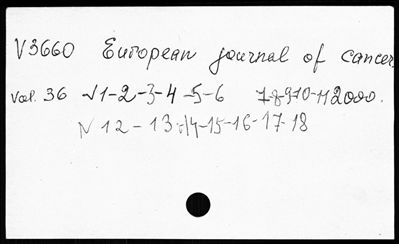 V3660 European journal of cancer
Vol. 36 N1-2-3-4-5-6 7-8-9-10-11 2000.
N 12-13-14-15-16-17-18